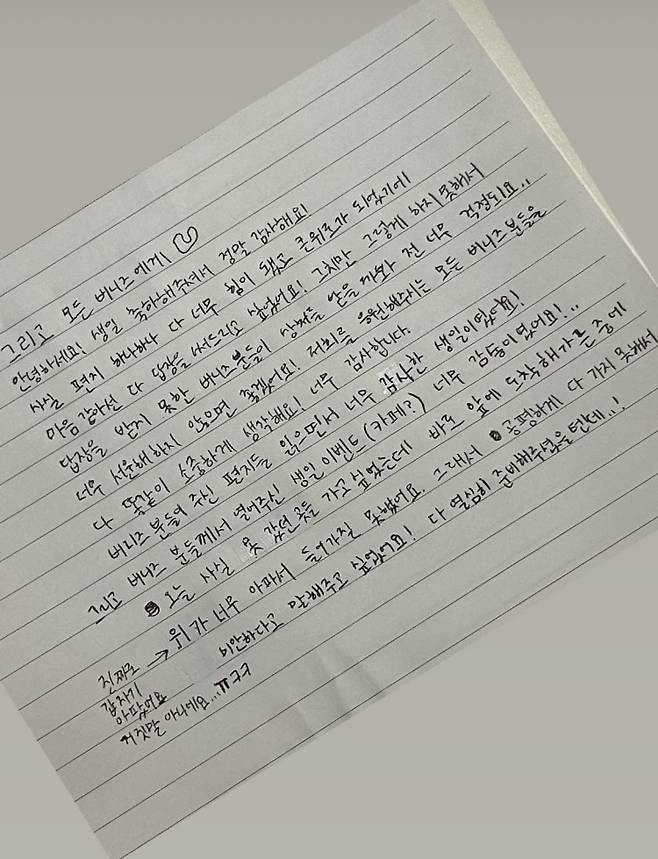 그리고 모든 버니즈에게
안녕하세요! 생일 축하해주셔서 정말 감사해요!
사실 편지 하나하나 다 너무 힘이 됐고 큰위로가 되었기에
마음 같아선 다 답장을 써드리고 싶었어요! 그치만 그렇게 하지 못해서
답장을 받지 못한 버니즈분들이 상처를 받을까봐 전 너무 걱정되요..
너무 서운해하지 않으면 좋겠어요! 저희를 응원해주시는 모든 버니즈분들을
다 똑같이 소중하게 생각해요! 너무 감사합니다.
버니즈 분들이 주신 편지들 읽으면서 너무 감사한 생일이었어요!
그리고 버니즈 분들께서 열어주신 생일 이벤트(카페?) 너무 감동이었어요!..
오늘 사실 못 갔던 곳들 가고싶었는데 바로 앞에 도착해가는 중에
→ 위가 너무 아파서 들어가질 못했어요. 그래서 공평하게 다 가지 못해서
미안하다고 말해주고 싶었어요! 다 열심히 준비해주셨을텐데..!
진짜로
갑자기
아팠어요
거짓말 아니에요...ㅠㅋㅋ